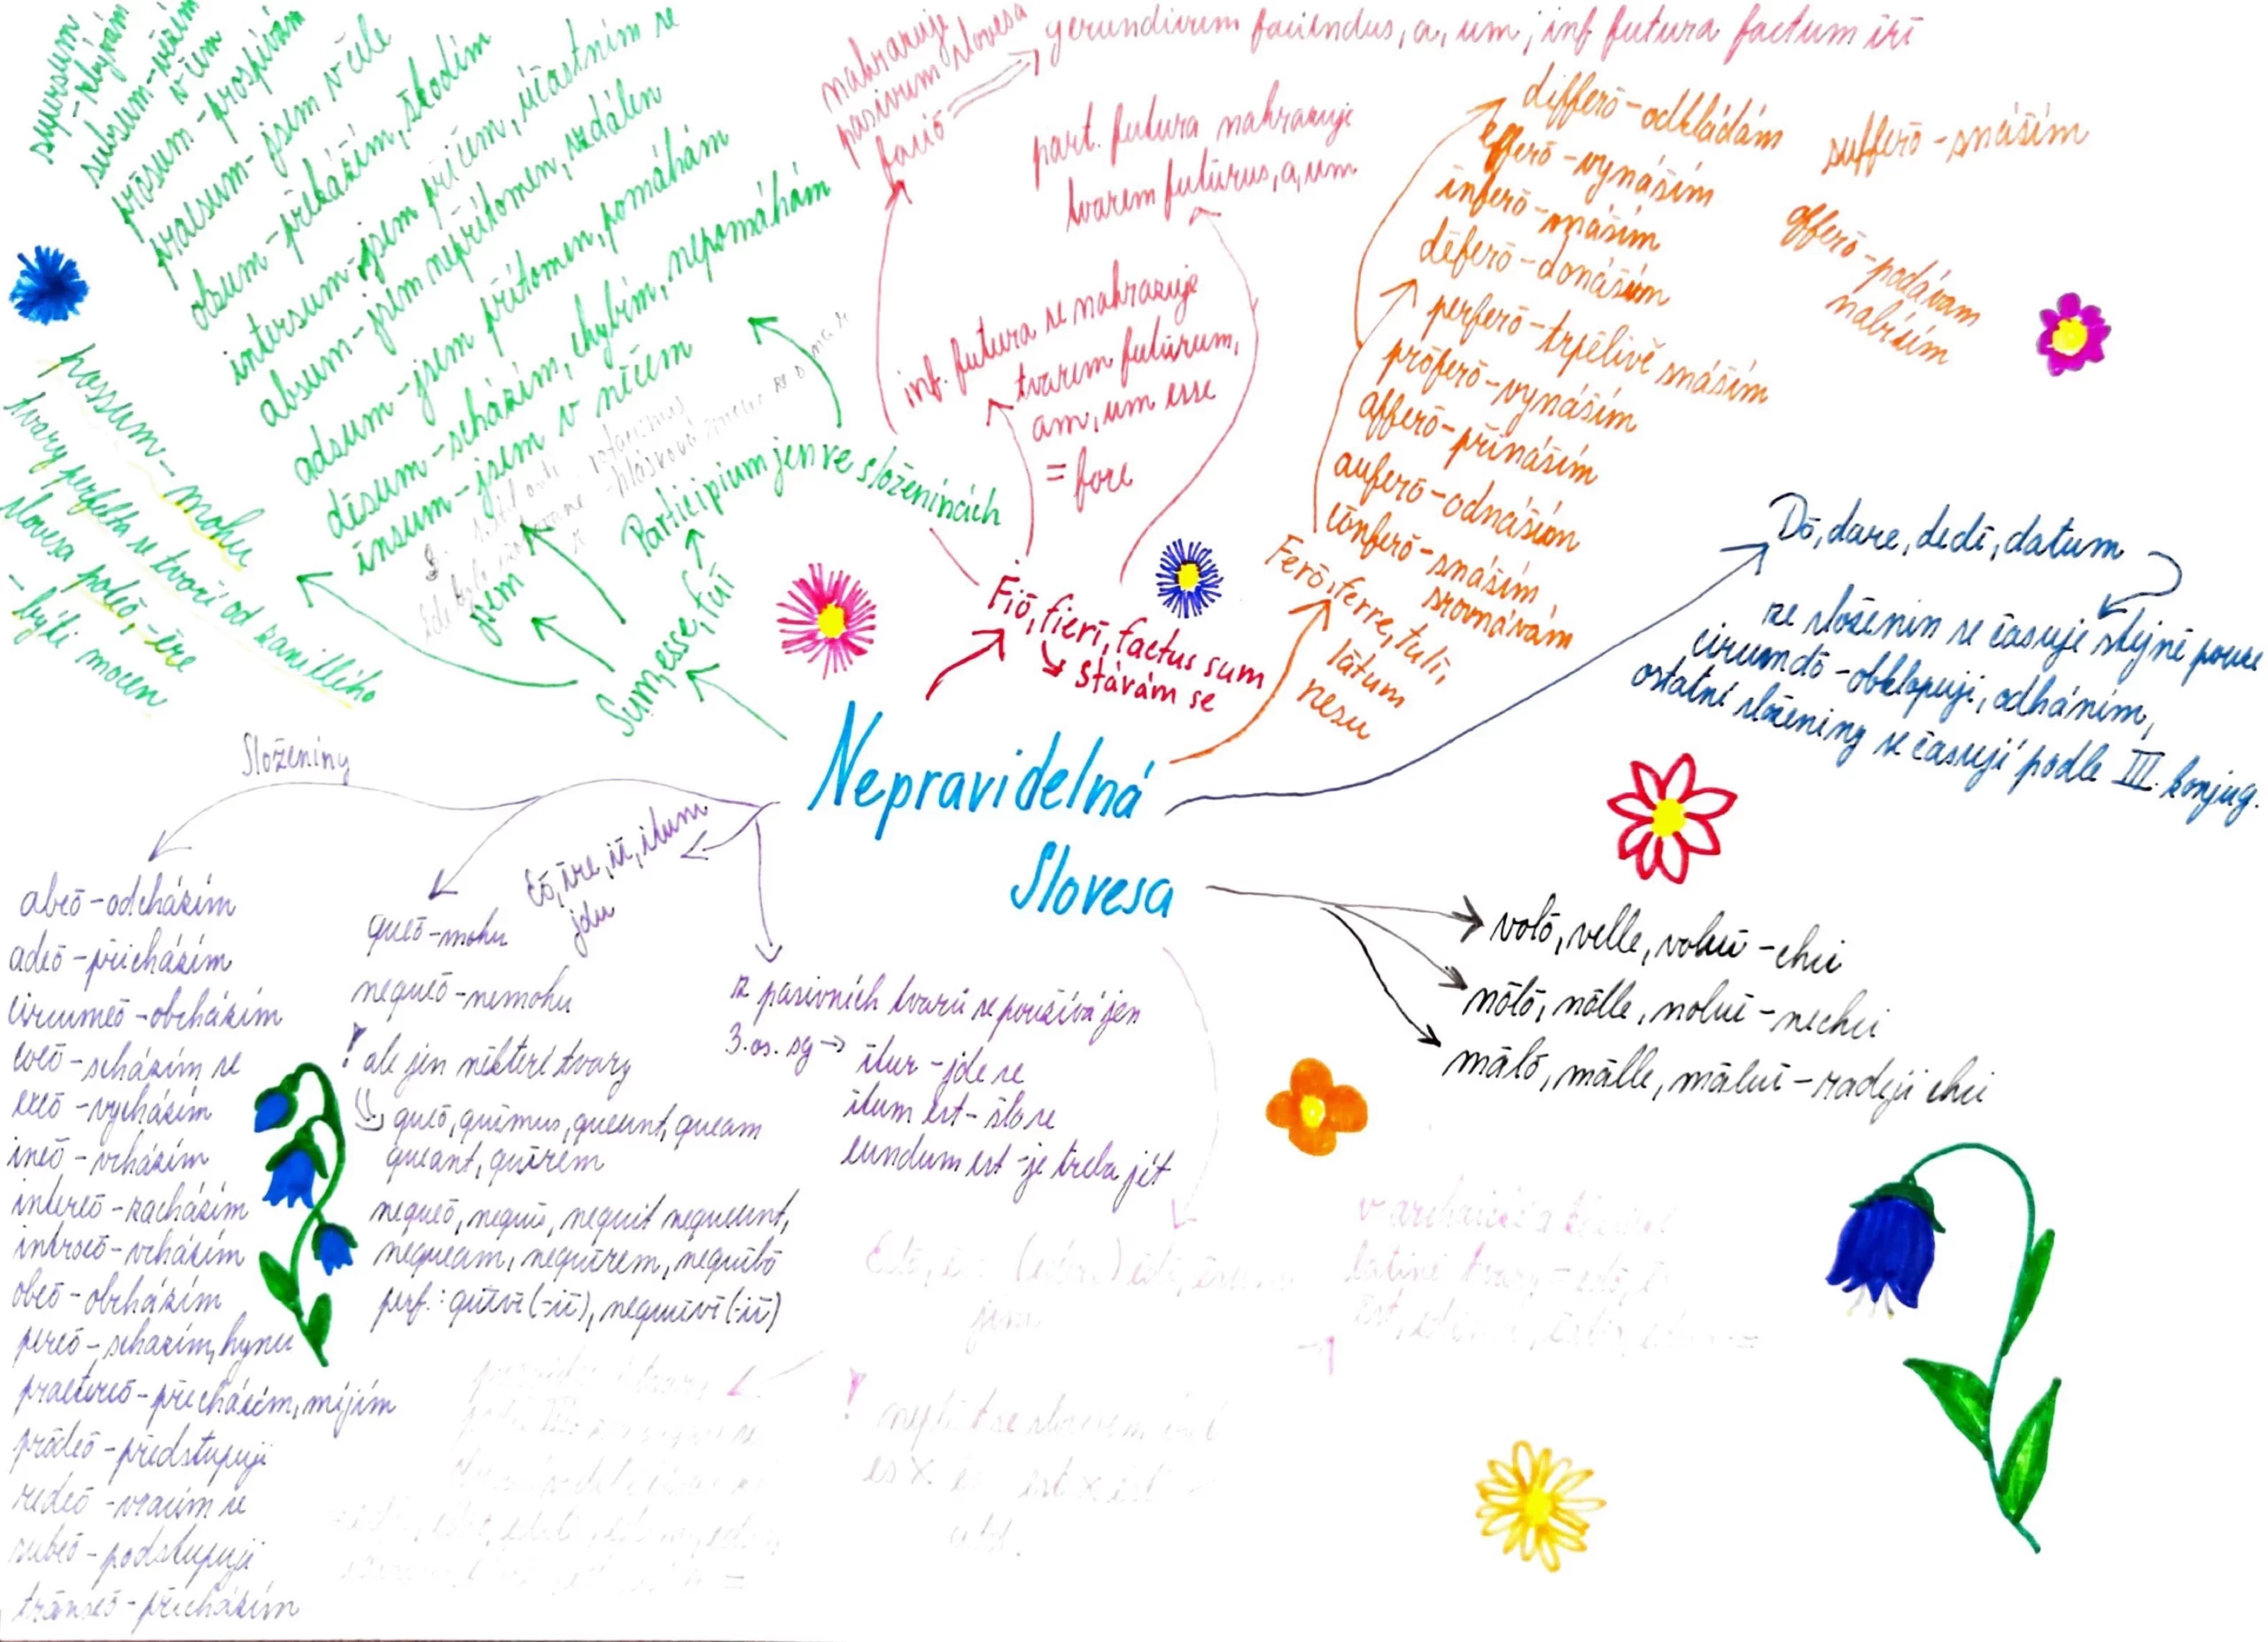 supersum
- zbývám
subsum - vězím
v čem
prōsum - prospívám
praesum - jsem v čele
obsum - překážím, škodím
intersum - jsem při čem, účastním se
absum - jsem nepřítomen, vzdálen
adsum - jsem přítomen, pomáhám
dēsum - scházím, chybím, nepomáhám
īnsum - jsem v něčem
possum - mohu
tvary perfekta se tvoří od zaniklého
slovesa poteō, -ēre
- býti mocen
Participium jen ve složeninách
jsem
Sum, esse, fuī
nahrazuje
pasivum slovesa
faciō
gerundivum faciendus, a, um; inf futura factum īrī
part. futura nahrazuje
tvarem futūrus, a, um
inf. futura se nahrazuje
tvarem futūrum,
am, um esse
= fore
Fīō, fierī, factus sum
stávám se
differō - odkládám
efferō - vynáším
īnferō - vnáším
dēferō - donáším
perferō - trpělivě snáším
prōferō - vynáším
afferō - přináším
auferō - odnáším
cōnferō - snáším
srovnávám
sufferō - snáším
offerō - podávam
nabízím
Ferō, ferre, tulī,
lātum
nesu
Dō, dare, dedī, datum
ze složenin se časuje stejně pouze
circumdō - obklopuji, odháním,
ostatní složeniny se časují podle III. konjug.
Nepravidelná
Slovesa
Složeniny
Eō, īre, iī, itum
jdu
abeō - odcházím
adeō - přicházím
circumeō - obcházím
coeō - scházím se
exeō - vycházím
ineō - vcházím
intereō - zacházím
introeō - vcházím
obeō - obcházím
pereō - scházím, hynu
praetereō - přecházím, míjím
prōdeō - předstupuji
redeō - vracím se
subeō - podstupuji
trānseō - přecházím
queō - mohu
nequeō - nemohu
! ale jen někteří tvary
queō, quīmus, queunt, queam
queant, quīrem
nequeō, nequīs, nequit nequeunt,
nequeam, nequīrem, nequībō
perf.: quīvī (-iī), nequīvī (-iī)
z pasivních tvarů se používá jen
3. os. sg → ītur - jde se
itum est - šlo se
eundum est - je třeba jít
volō, velle, voluī - chci
nōlō, nōlle, nōluī - nechci
mālō, mālle, māluī - raději chci